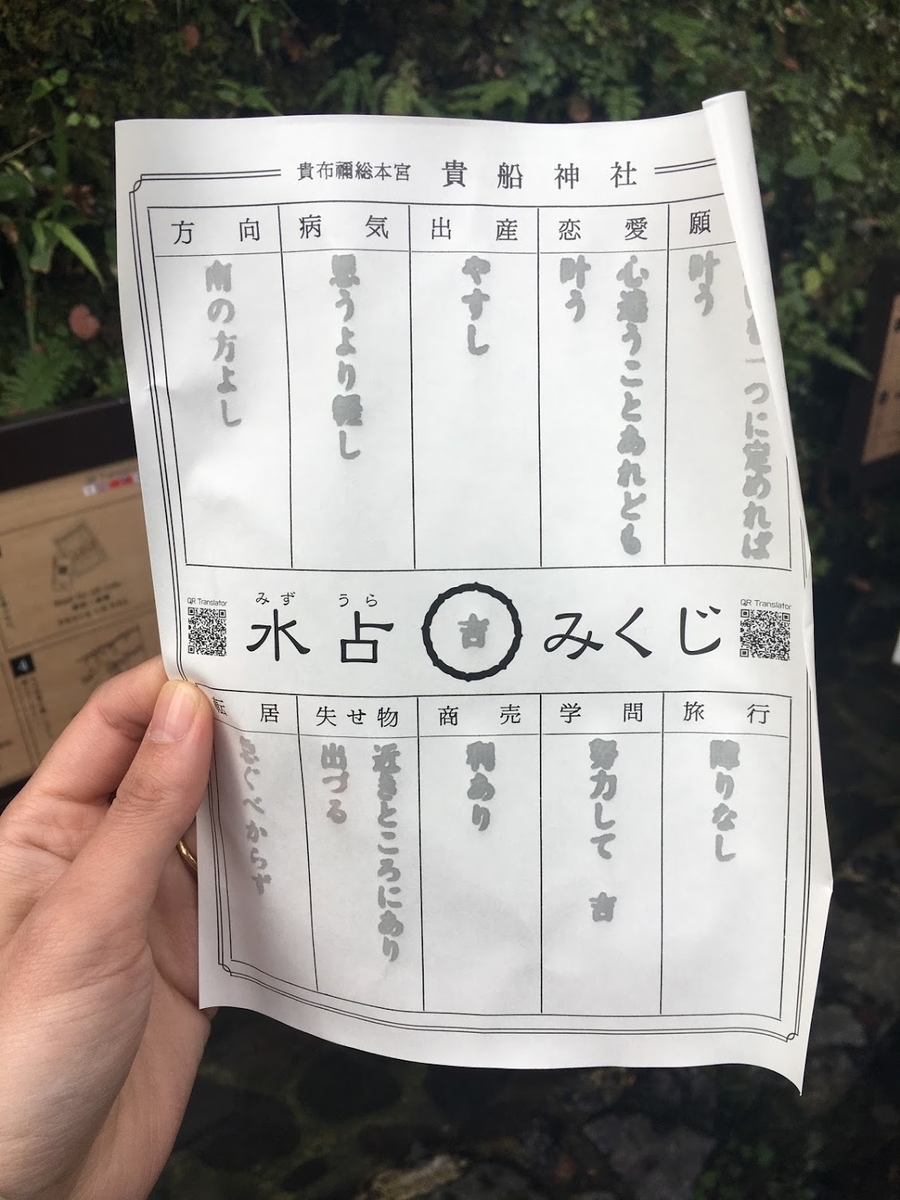 貴布禰総本宮 貴船神社
願
一つに定めれば
叶う
恋愛
心違うことあれども
叶う
出産
やすし
病気
思うより軽し
方向
南の方よし
QR Translator
みず うら
水占 吉 みくじ
QR Translator
旅行
障りなし
学問
努力して 吉
商売
利あり
失せ物
近きところにあり
出づる
転居
急ぐべからず
4